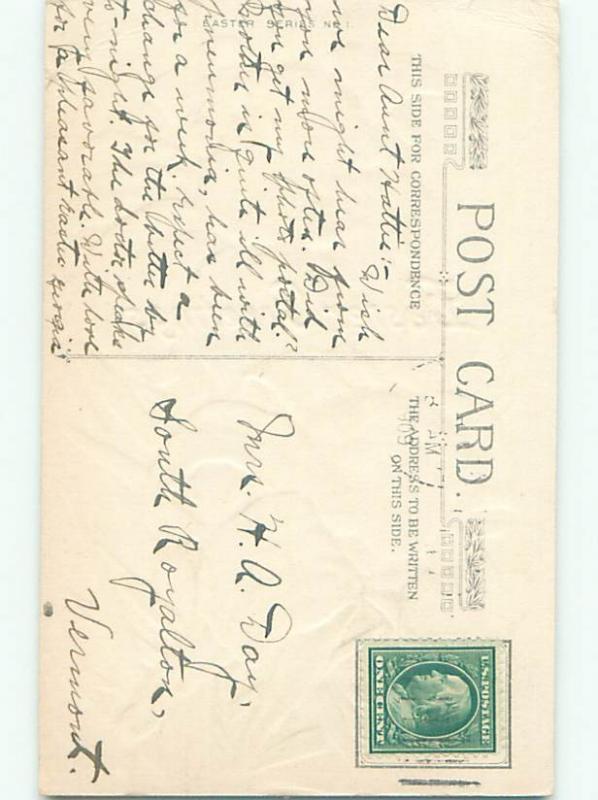 POST CARD.
THIS SIDE FOR CORRESPONDENCE
THE ADDRESS TO BE WRITTEN
ON THIS SIDE.
EASTER SERIES No 1.
Dear Aunt Hattie:- Wish
we might hear from
you more often. Did
you get my photo postal?
Brother is quite ill with
pneumonia, has been
for a week. Expect a
change for the better by
to-night. The doctor speaks
very favorable. With love
for a pleasant Easter Georgia
Mrs. H. A. Day,
South Royalton,
Vermont.
U.S. POSTAGE
ONE CENT
PM
909